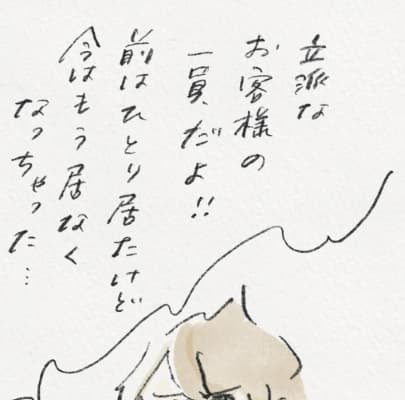 立派な
お客様の
一員だよ!!
前はひとり居たけど
今はもう居なく
なっちゃった…